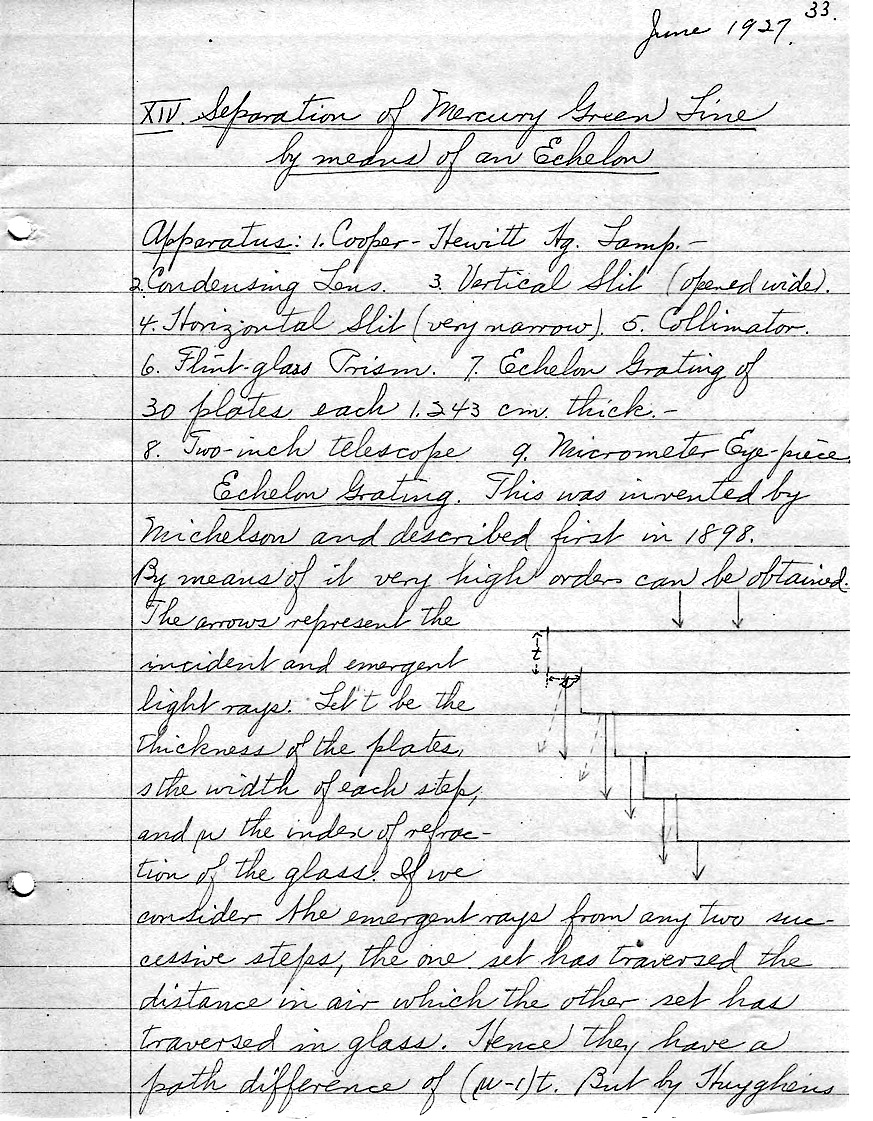 33.
June 1927.
XIV. Separation of Mercury Green Line
by means of an Echelon
Apparatus: 1. Cooper-Hewitt Hg. Lamp.-
2. Condensing Lens. 3. Vertical Slit (opened wide).
4. Horizontal Slit (very narrow). 5. Collimator.
6. Flint-glass Prism. 7. Echelon Grating of
30 plates each 1.243 cm. thick.-
8. Two-inch telescope 9. Micrometer Eye-piece
Echelon Grating. This was invented by
Michelson and described first in 1898.
By means of it very high orders can be obtained.
The arrows represent the
incident and emergent
light rays. Let t be the
thickness of the plates,
s the width of each step,
and μ the index of refrac-
tion of the glass. If we
consider the emergent rays from any two suc-
cessive steps, the one set has traversed the
distance in air which the other set has
traversed in glass. Hence they have a
path difference of (μ-1)t. But by Huyghens
t
s